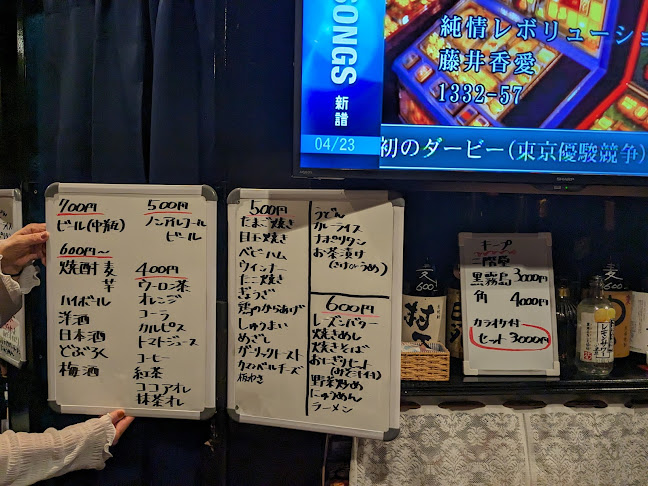 SONGS
新譜
04/23
純情レボリューショ
藤井香愛
1332-57
初のダービー(東京優駿競争)
SHARP
700円
ビール(中瓶)
600円〜
焼酎 麦
芋
ハイボール
洋酒
日本酒
どぶろく
梅酒
500円
ノンアルコール
ビール
400円
ウーロン茶
オレンジ
コーラ
カルピス
トマトジュース
コーヒー
紅茶
ココアオレ
抹茶オレ
500円
たまご焼き
目玉焼き
ベビーハム
ウインナー
たこ焼き
ぎょうざ
鶏のからあげ
しゅうまい
めざし
ガーリックトースト
カマンベールチーズ
板わさ
うどん
カレーライス
ナポリタン
お茶漬け
(さけ・うめ)
600円
レーズンバター
焼きめし
焼きそば
おにぎりセット
野菜炒め
にゅうめん
ラーメン
キープ
黒霧島 3000円
角 4000円
カラオケ付
セット 3000円
麦
600